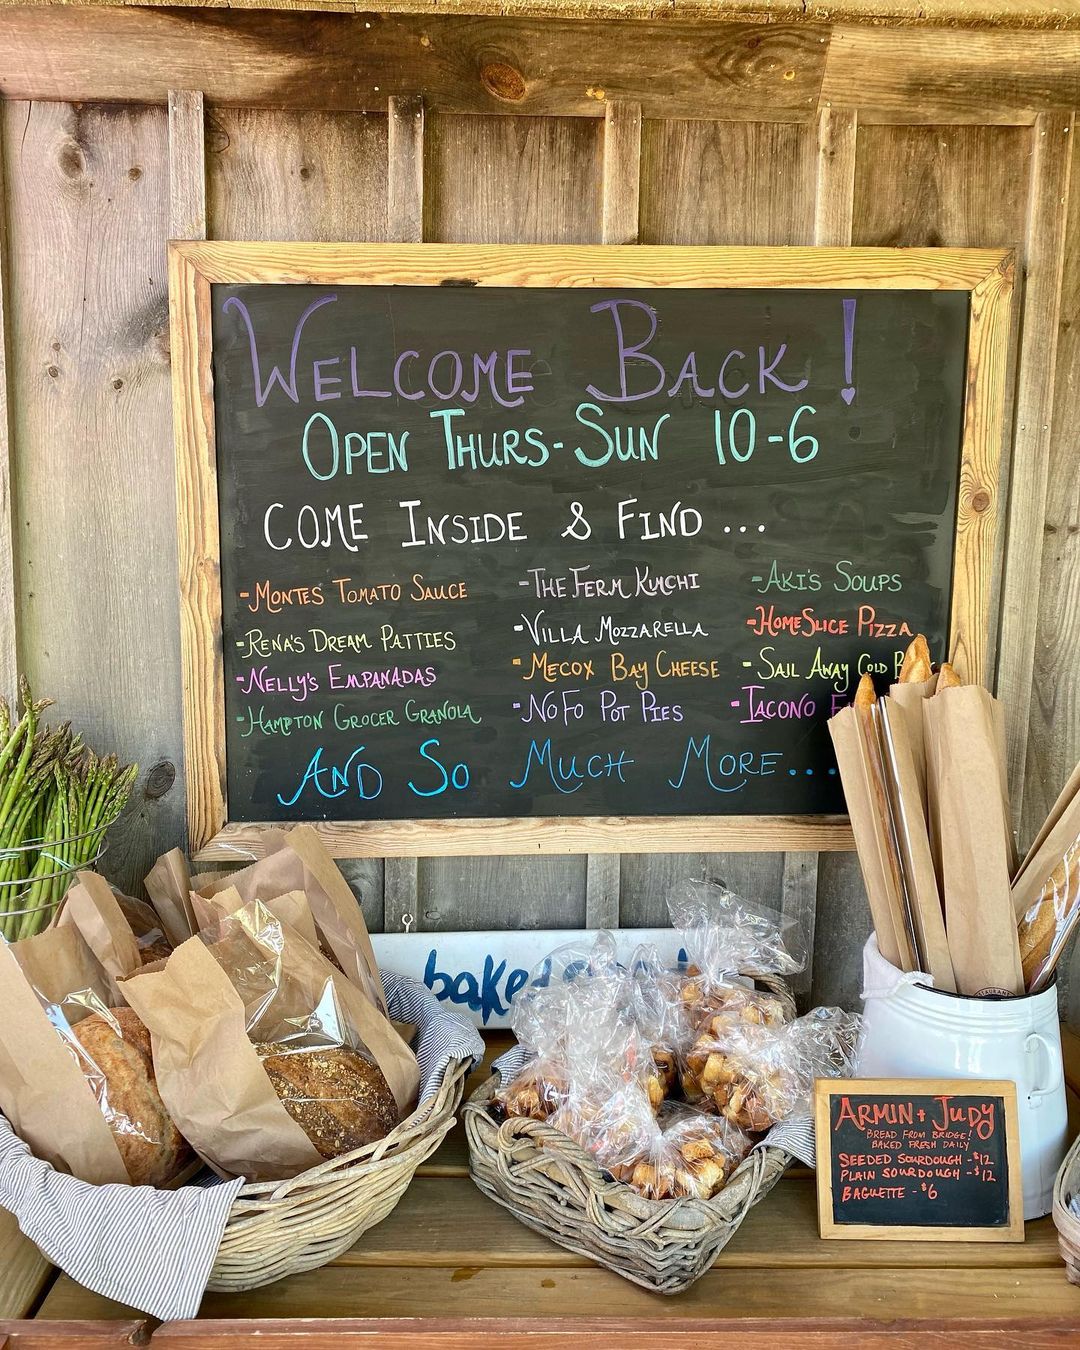 WELCOME BACK!
OPEN THURS-SUN 10-6
COME INSIDE & FIND...
-MONTES TOMATO SAUCE
-RENA'S DREAM PATTIES
-NELLY'S EMPANADAS
-HAMPTON GROCER GRANOLA
-THE FERM KIMCHI
-VILLA MOZZARELLA
-MECOX BAY CHEESE
-NOFO POT PIES
-AKI'S SOUPS
-HOMESLICE PIZZA
-SAIL AWAY COLD
-IACONO
AND SO MUCH MORE...
baked
ARMIN + JUDY
BREAD FROM BRIDGE!
BAKED FRESH DAILY
SEEDED SOURDOUGH - $12
PLAIN SOURDOUGH - $12
BAGUETTE - $6